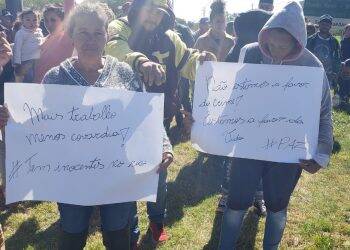 Mais trabalho
menos covardia!
# Tem inocentes no
Não estamos a favor
do crime!
Estamos a favor da
Vida